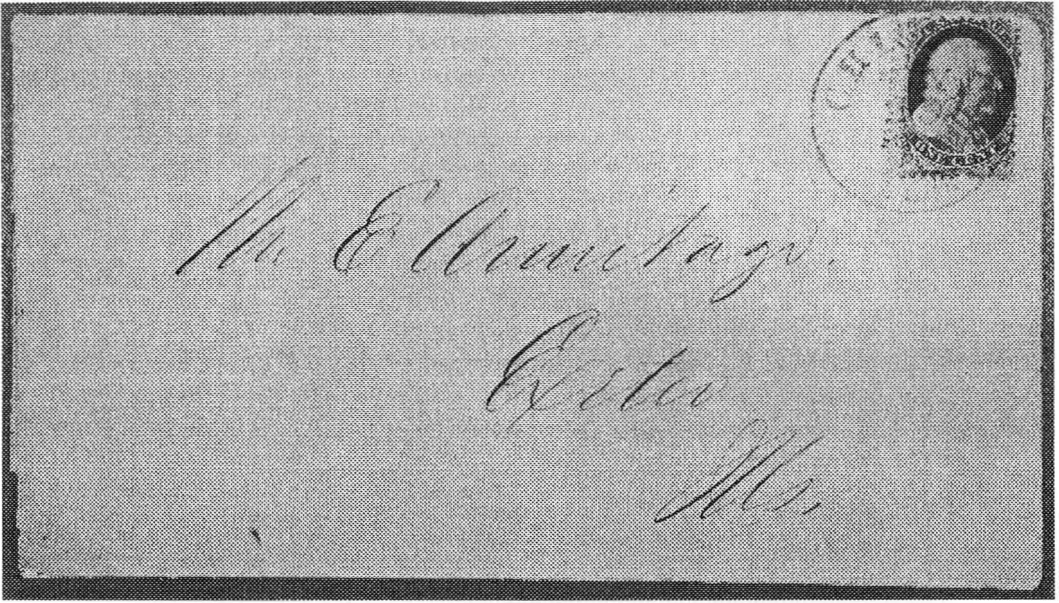 CHI
ONE CENT
Mr E Armitage.
Exeter